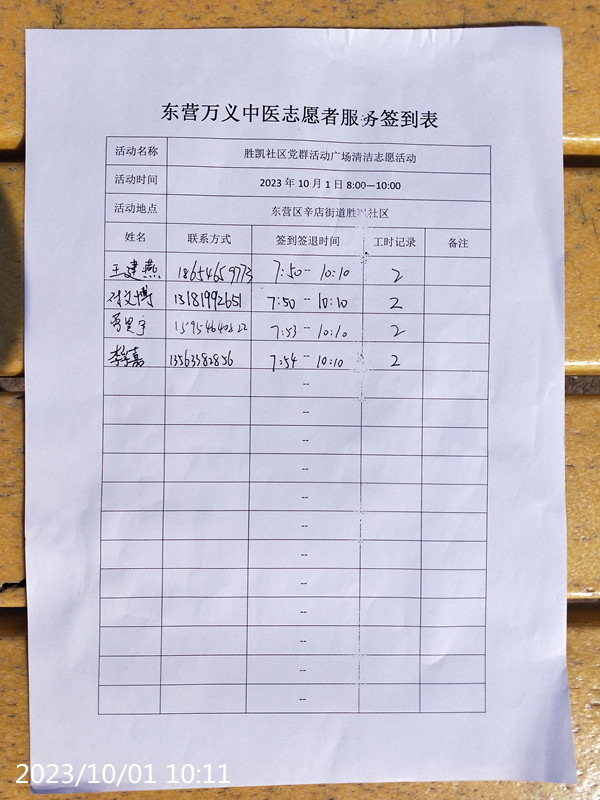 东营万义中医志愿者服务签到表
活动名称 胜凯社区党群活动广场清洁志愿活动
活动时间 2023 年 10 月 1 日 8:00—10:00
活动地点 东营区辛店街道胜凯社区
姓名 联系方式 签到签退时间 工时记录 备注
王建燕 18654659773 7:50 -- 10:10 2
文博 13181992651 7:50 -- 10:10 2
15954640822 7:53 -- 10:10 2
李嘉 13563382856 7:54 -- 10:10 2
--
--
--
--
--
--
--
--
--
--
--
--
2023/10/01 10:11